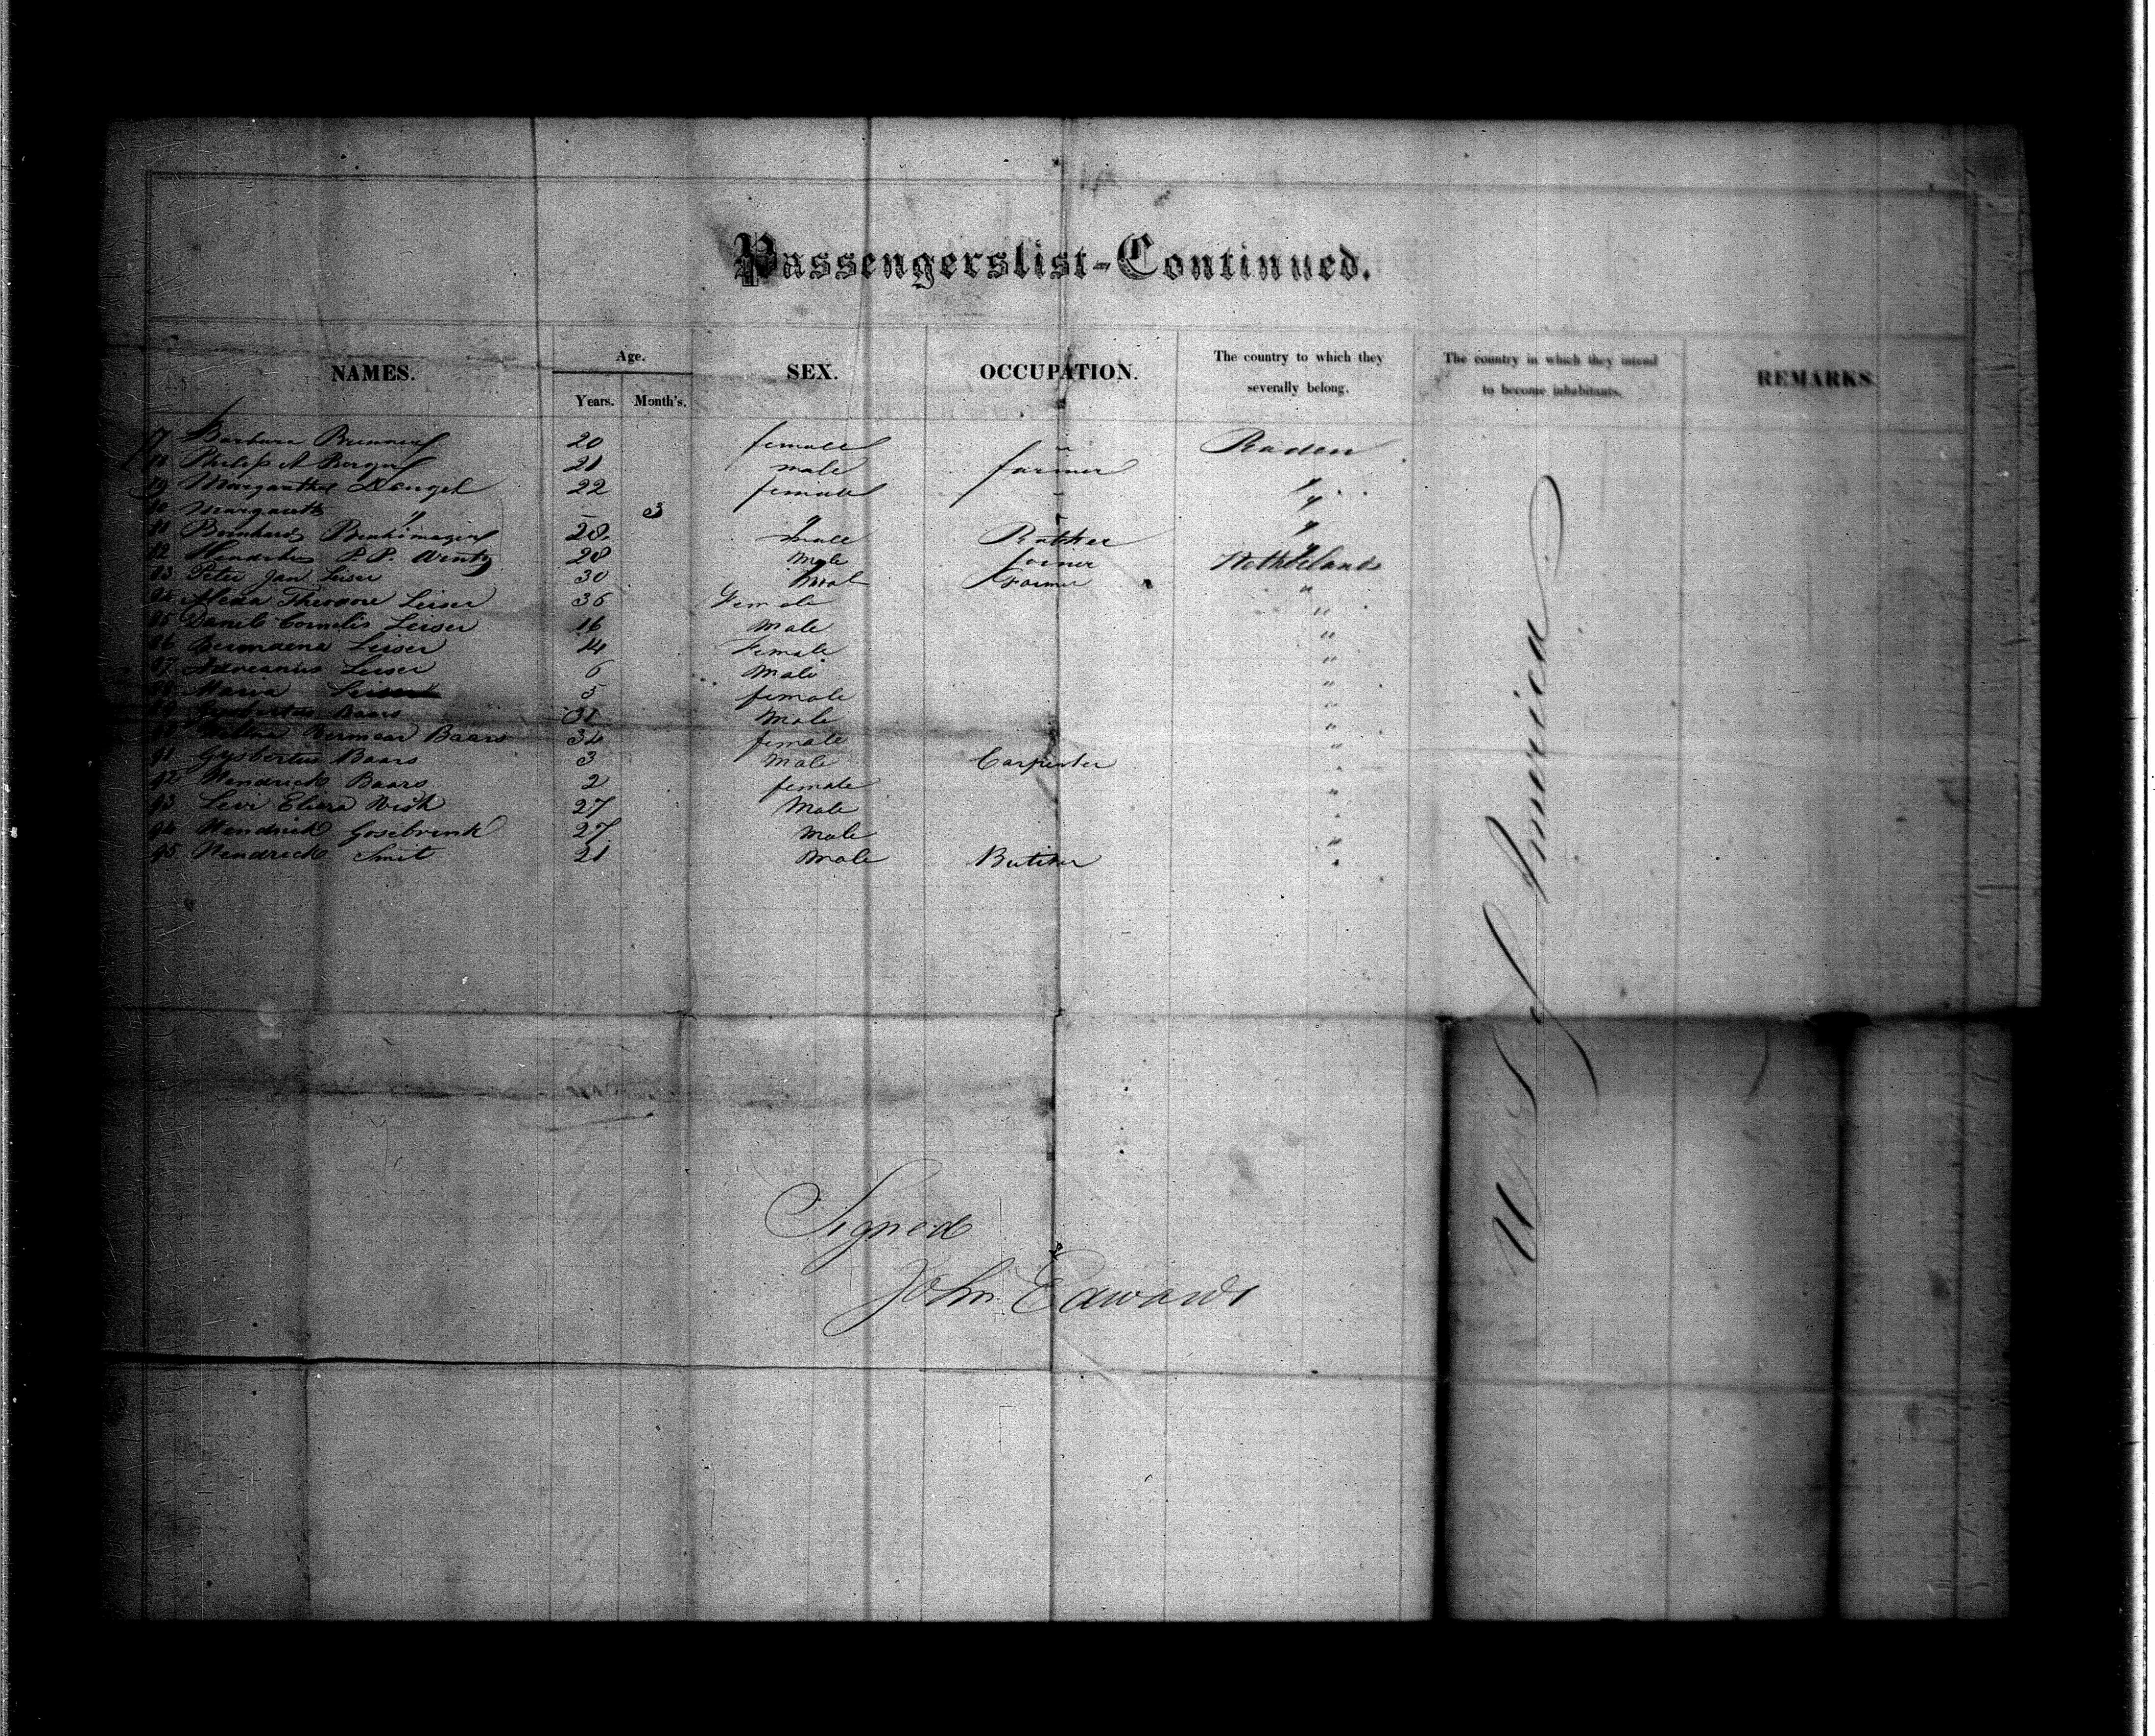 Passengerslist-Continued.
NAMES. Age. Years. Month's. SEX. OCCUPATION. The country to which they severally belong. The country in which they intend to become inhabitants. REMARKS.
Barbara 20 female " Baden
Philip A 21 male farmer "
Margaretha Dengel 22 female " "
Margareth " - 3 " "
Bernhard 28 male "
P. P. Wentz 28 Male Netherlands
Peter Jan Leiser 30 Male Farmer "
Theodore Leiser 36 Female "
Daniel Cornelis Leiser 16 Male "
Leiser 14 Female "
Adreanus Leiser 6 Male "
Maria Leiser 5 female "
Gysbertus Baars 31 Male "
Vermeer Baars 34 female "
91 Gysbertus Baars 3 Male Carpenter "
92 Hendrick Baars 2 female "
93 Levi 27 Male "
94 Hendrick Gosebrink 27 Male "
95 Hendrick Smit 21 Male Butcher "
U S of America
Signed
John Edwards